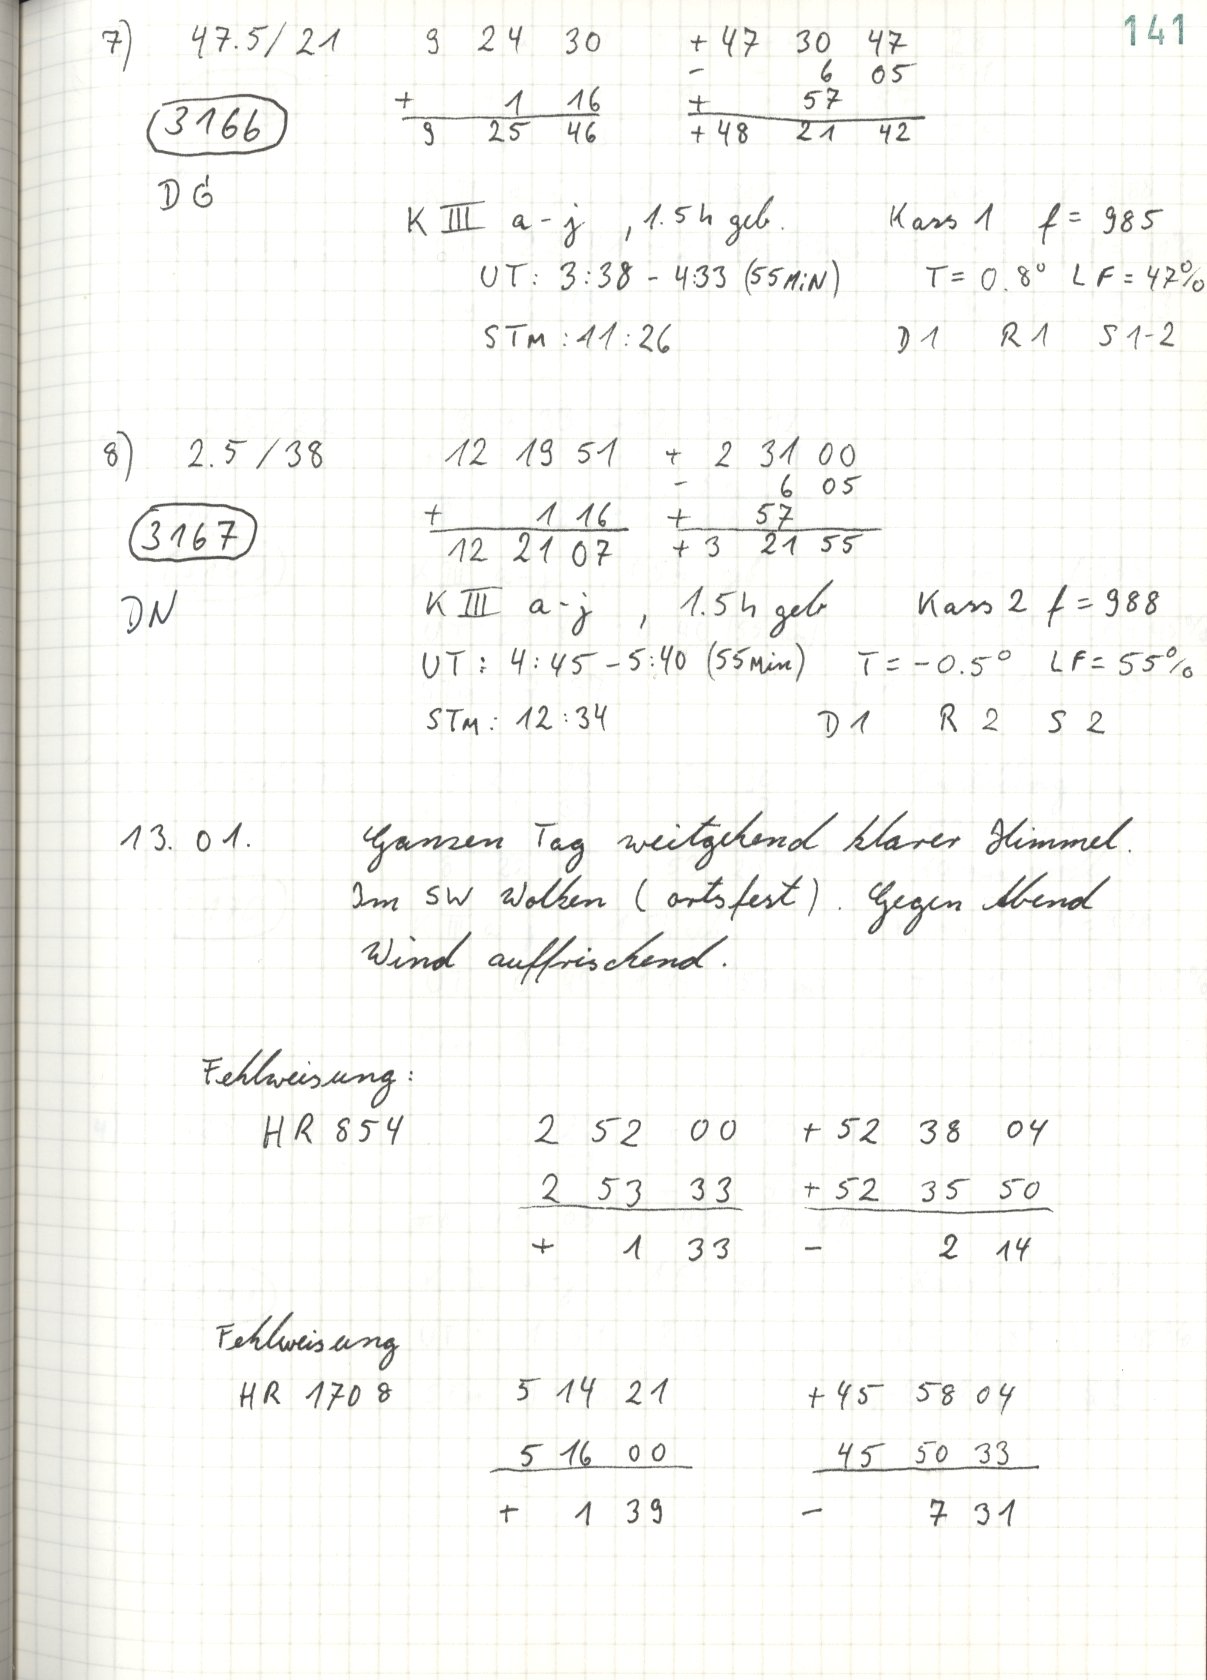 141
7) 47.5/21 9 24 30 + 47 30 47
- 6 05
3166 + 1 16 + 57
9 25 46 + 48 21 42
DG
K III a-j , 1.5h geb. Kass 1 f = 985
UT: 3:38 - 4:33 (55 MiN) T = 0.8° LF = 47%
STM : 11:26 D1 R1 S 1-2
8) 2.5/38 12 19 51 + 2 31 00
- 6 05
3167 + 1 16 + 57
12 21 07 + 3 21 55
DN K III a-j , 1.5h geb Kass 2 f = 988
UT: 4:45 - 5:40 (55 Min) T = -0.5° LF = 55%
STM: 12:34 D1 R 2 S 2
13. 01. Ganzen Tag weitgehend klarer Himmel.
Im SW Wolken (ortsfest). Gegen Abend
Wind auffrischend.
Fehlweisung:
HR 854 2 52 00 + 52 38 04
2 53 33 + 52 35 50
+ 1 33 - 2 14
Fehlweisung
HR 1708 5 14 21 + 45 58 04
5 16 00 45 50 33
+ 1 39 - 7 31